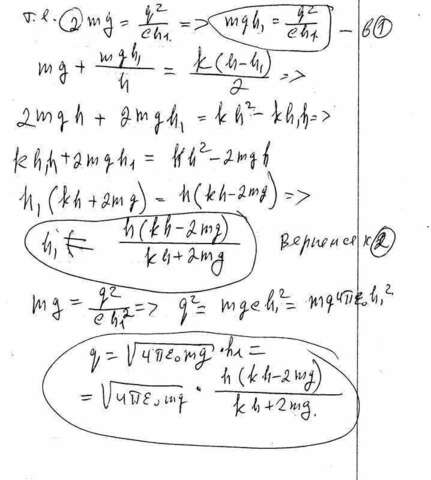 т.е. ② mg = q²/eh₁² => mgh₁ = q²/eh₁ — в ①
mg + mgh₁/h = k(h-h₁)/2 =>
2mgh + 2mgh₁ = kh² - kh₁h =>
kh₁h + 2mgh₁ = kh² - 2mgh
h₁(kh + 2mg) = h(kh - 2mg) =>
h₁ = h(kh - 2mg)/kh + 2mg Вернемся к ②
mg = q²/eh₁² => q² = mgeh₁² = mg4πε₀h₁²
q = √4πε₀mg · h₁ =
= √4πε₀mg · h(kh - 2mg)/kh + 2mg.